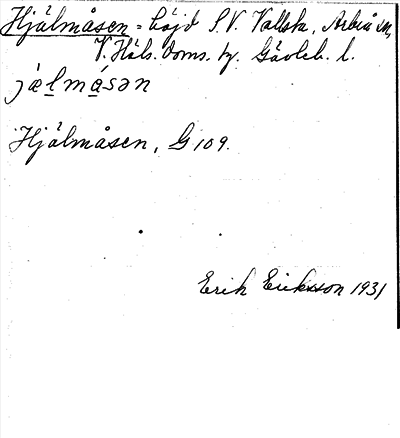 Hjälmåsen = höjd S.V. Vallsta, Arbrå sn,
V. Häls. doms. hg. Gävleb. l.
jælmåsən
Hjälmåsen, G 109.
Erik Eriksson 1931